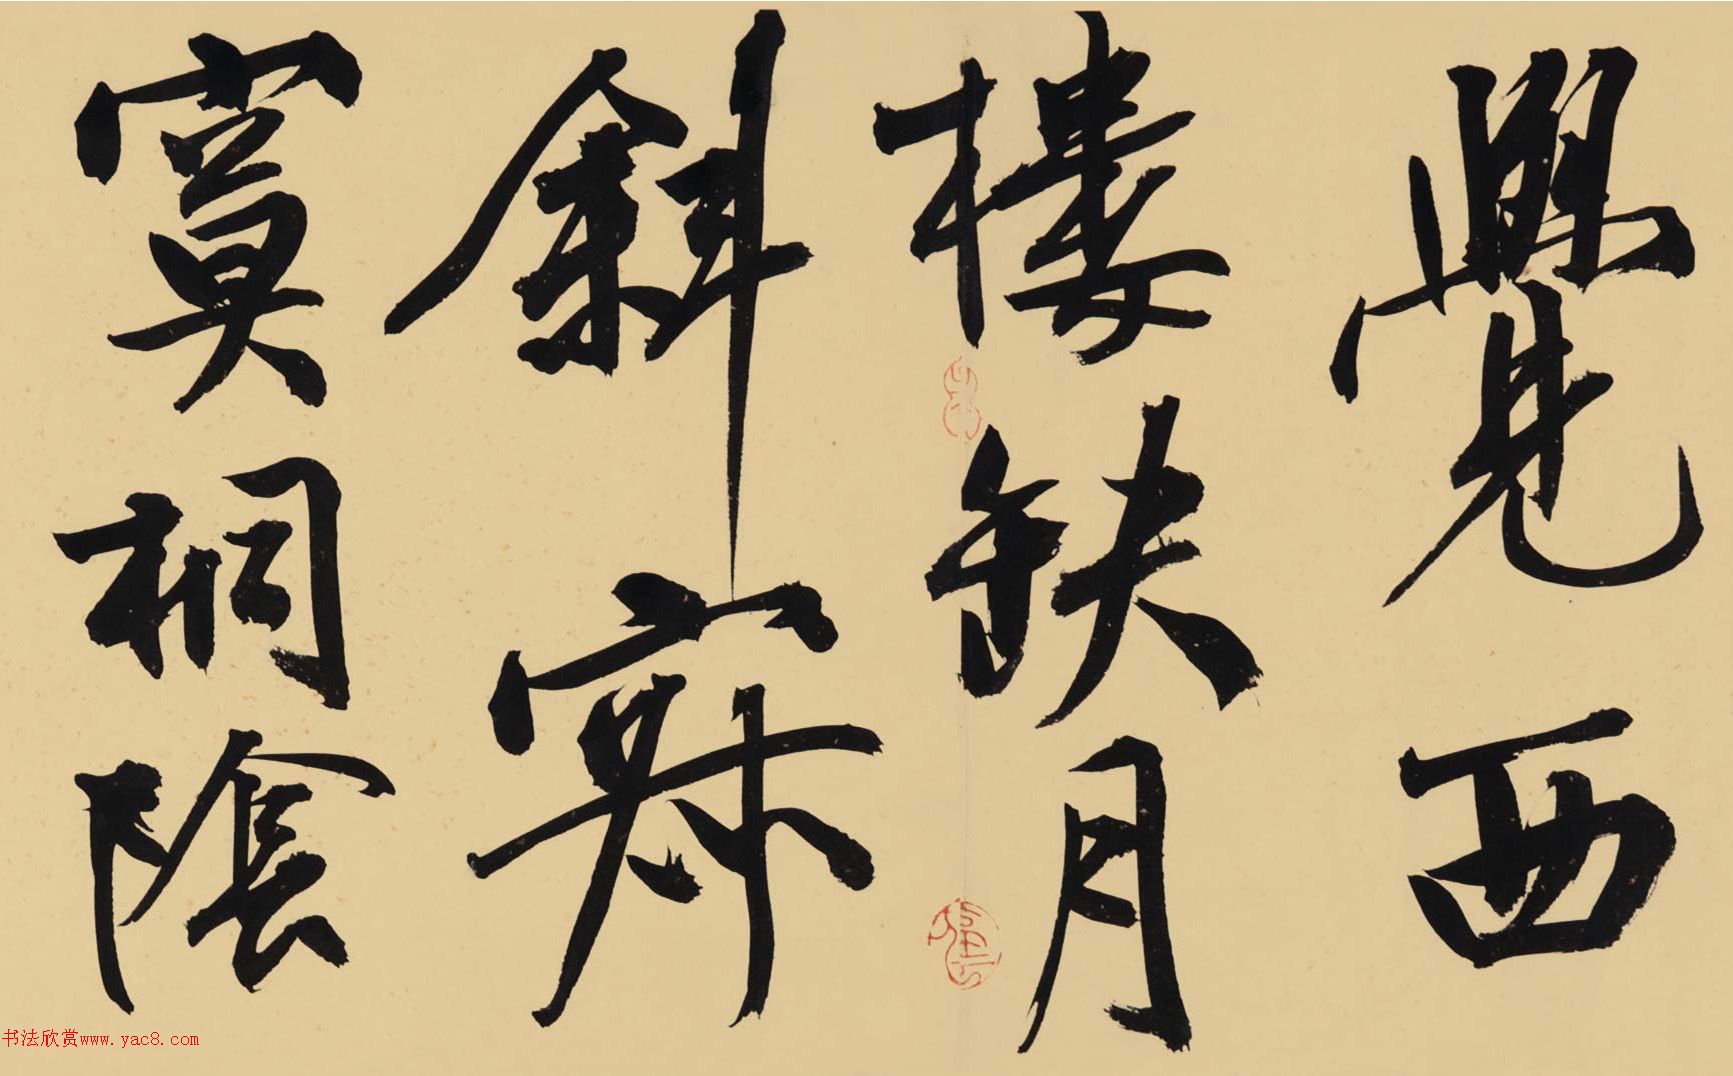 覺西
樓缺月
斜寂
寞桐陰
书法欣赏www.yac8.com